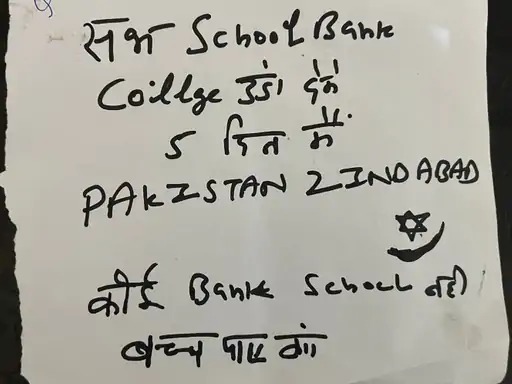 सभ School Bank
Coillge उडा देंगे
5 दिन में
PAKISTAN ZINDABAD
कोई Bank School नही
बच्च पाए गां